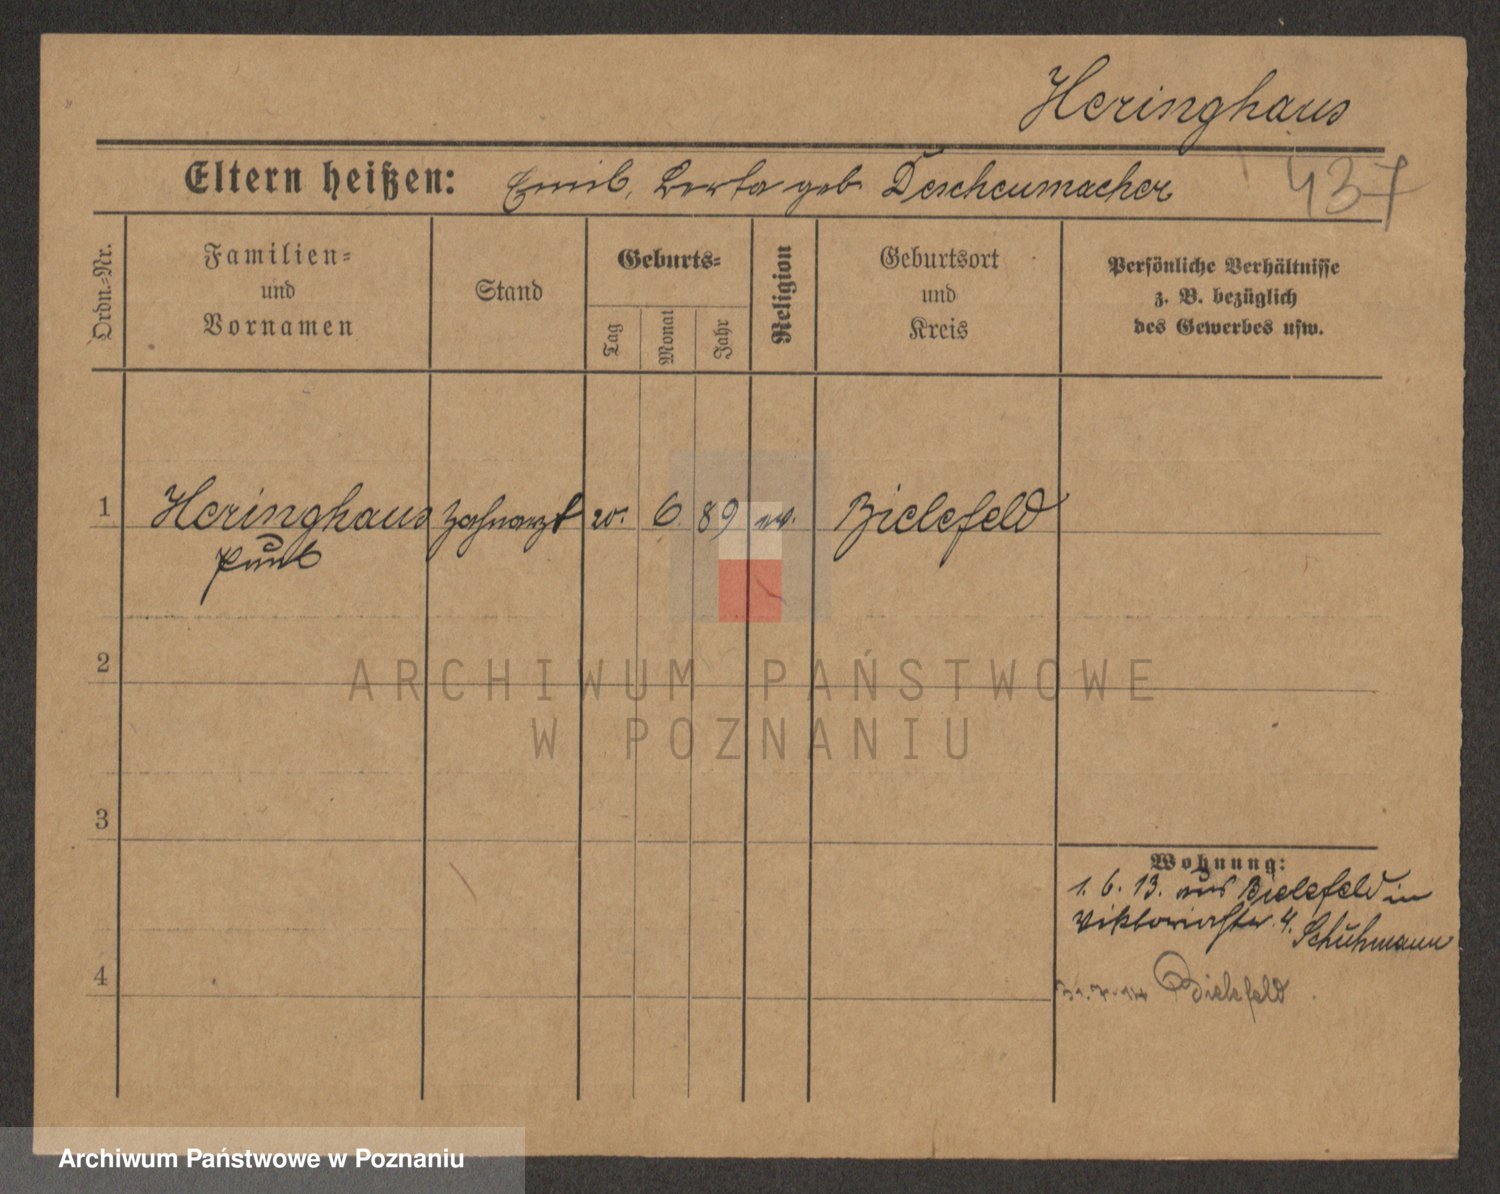 Heringhaus
Eltern heißen: Emil, Berta geb. Descheumacher
437
Ordn.-Nr.
Familien-
und
Vornamen
Stand
Geburts-
Tag
Monat
Jahr
Religion
Geburtsort
und
Kreis
Persönliche Verhältnisse
z. B. bezüglich
des Gewerbes usw.
1 Heringhaus Zahnarzt 20. 6. 89 ev. Bielefeld
Paul
2
3
4
Wohnung:
1. 6. 13. aus Bielefeld in
Viktoriastr. 4. Schuhmann
31.7.14 Bielefeld
ARCHIWUM PAŃSTWOWE
W POZNANIU
Archiwum Państwowe w Poznaniu